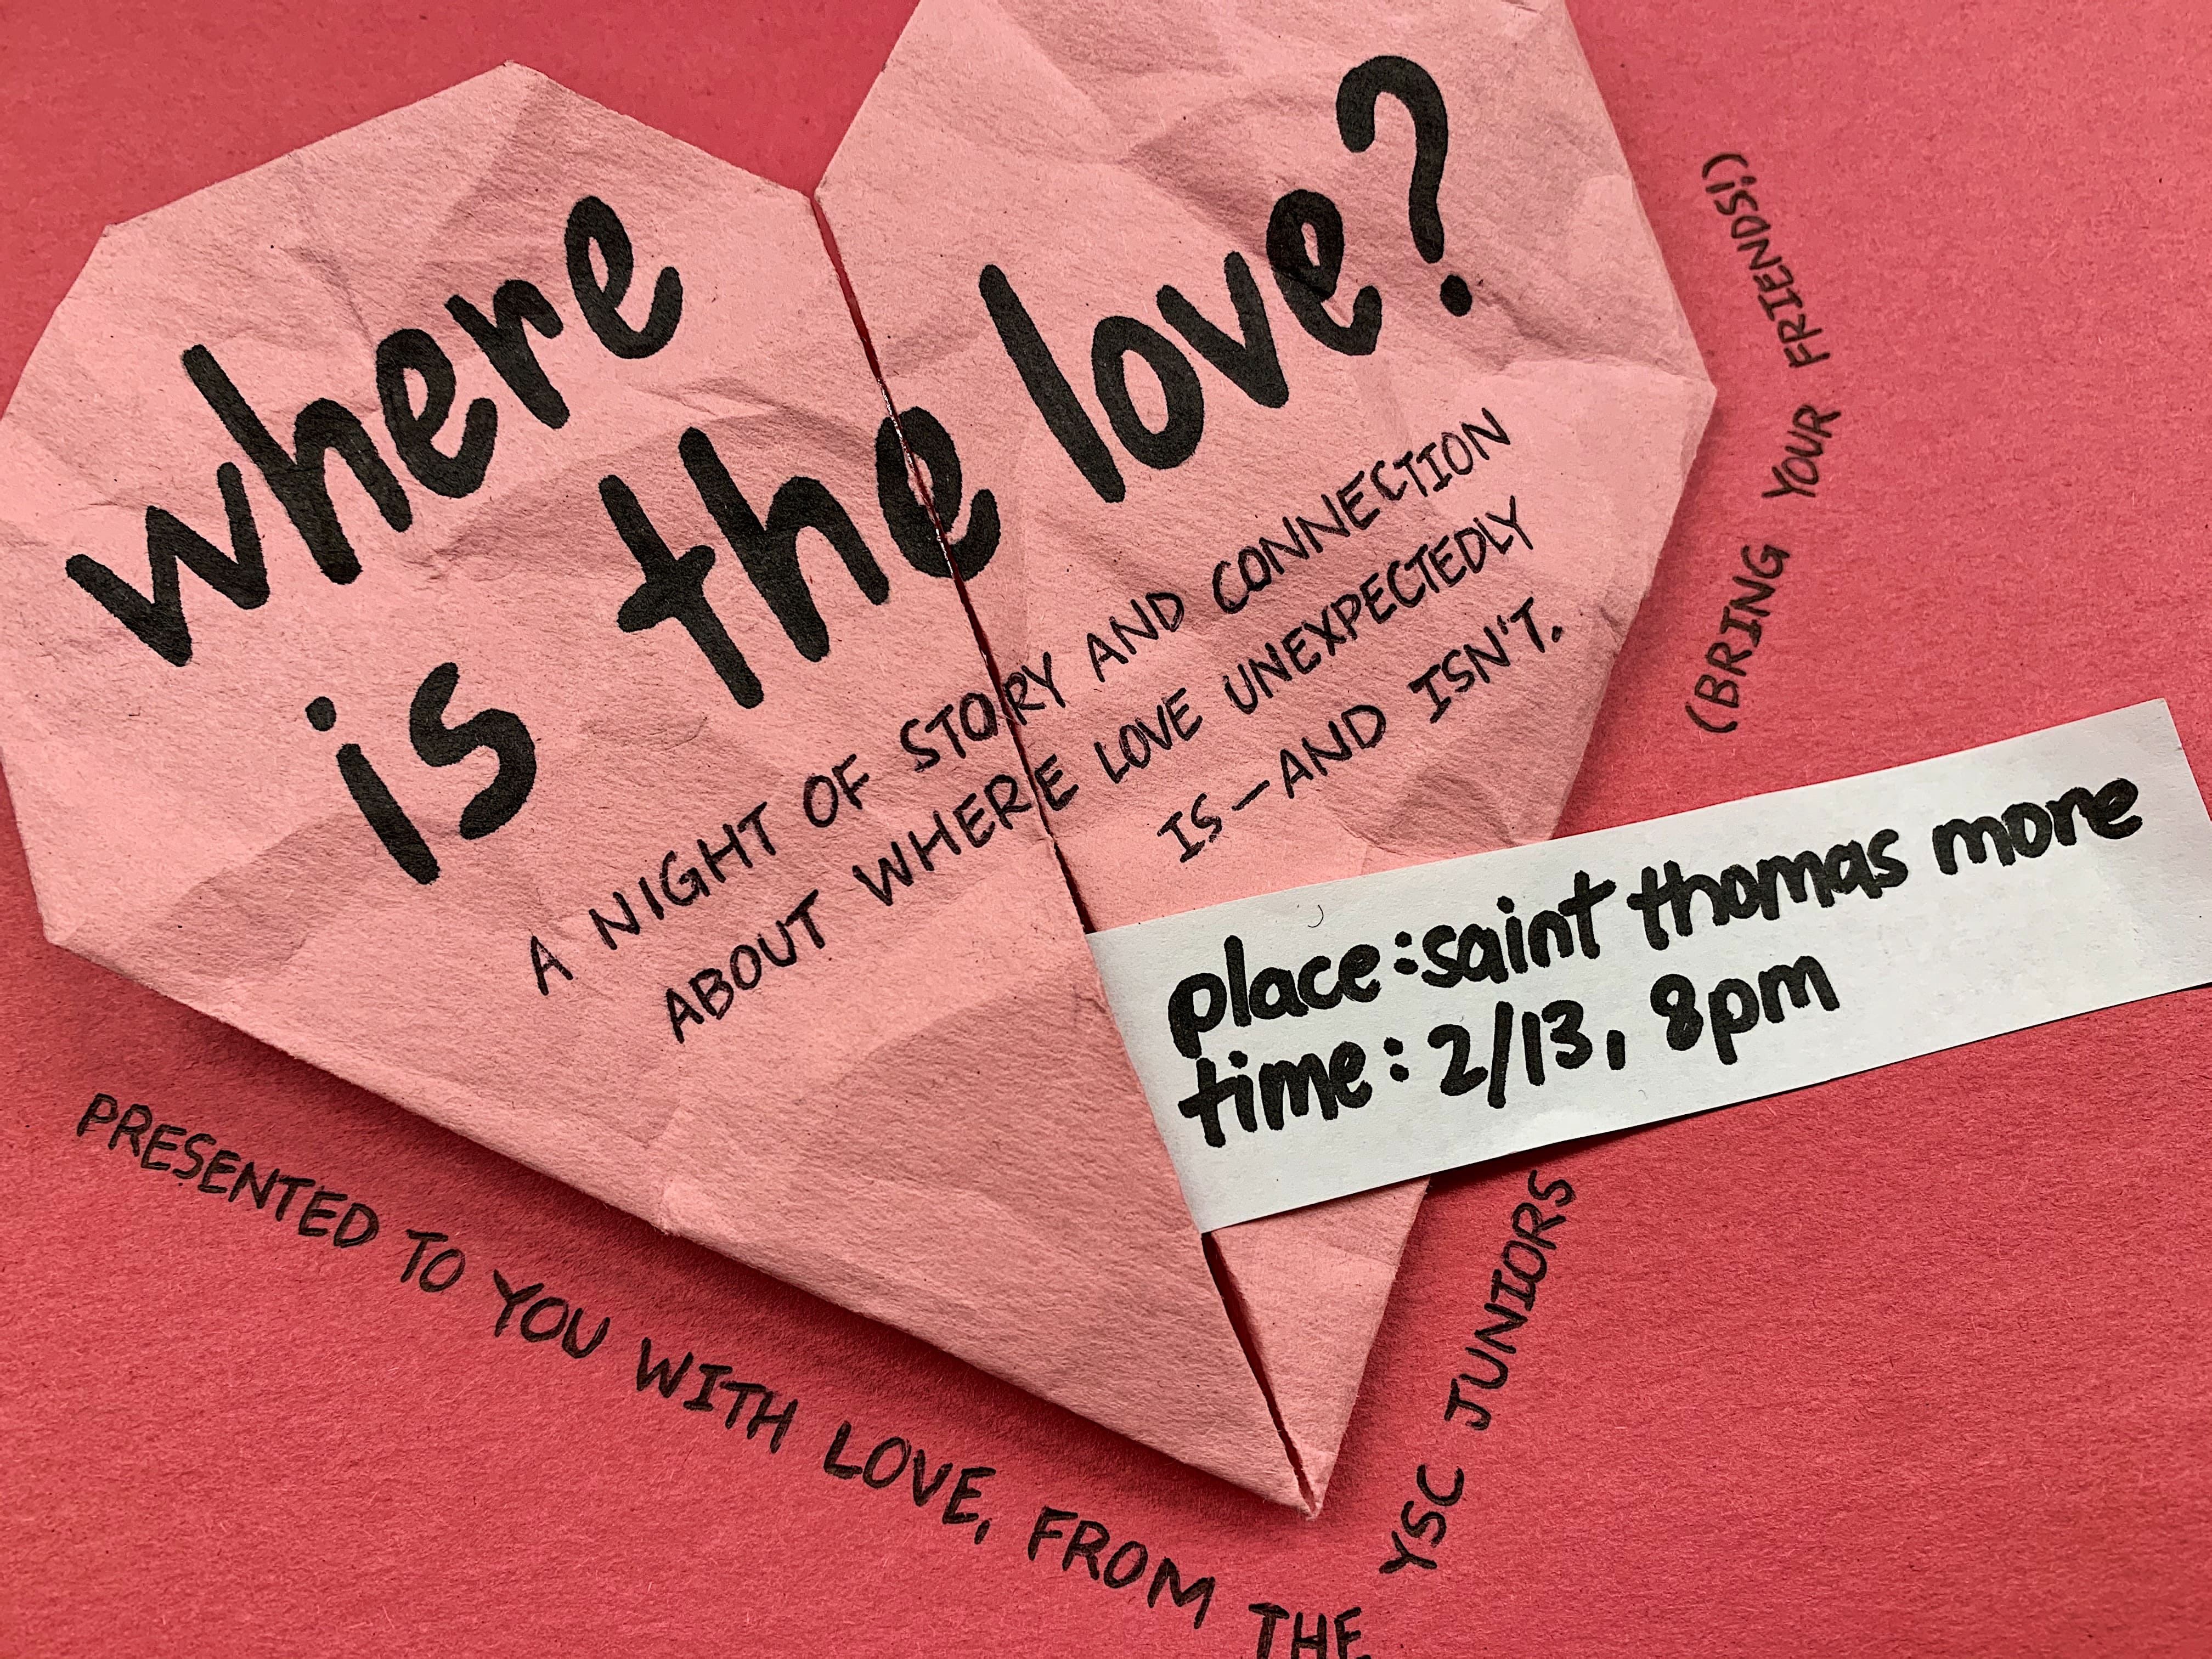 where
is the love?
A NIGHT OF STORY AND CONNECTION
ABOUT WHERE LOVE UNEXPECTEDLY
IS—AND ISN'T.
place: saint thomas more
time: 2/13, 8pm
PRESENTED TO YOU WITH LOVE, FROM THE YSC JUNIORS
(BRING YOUR FRIENDS!)